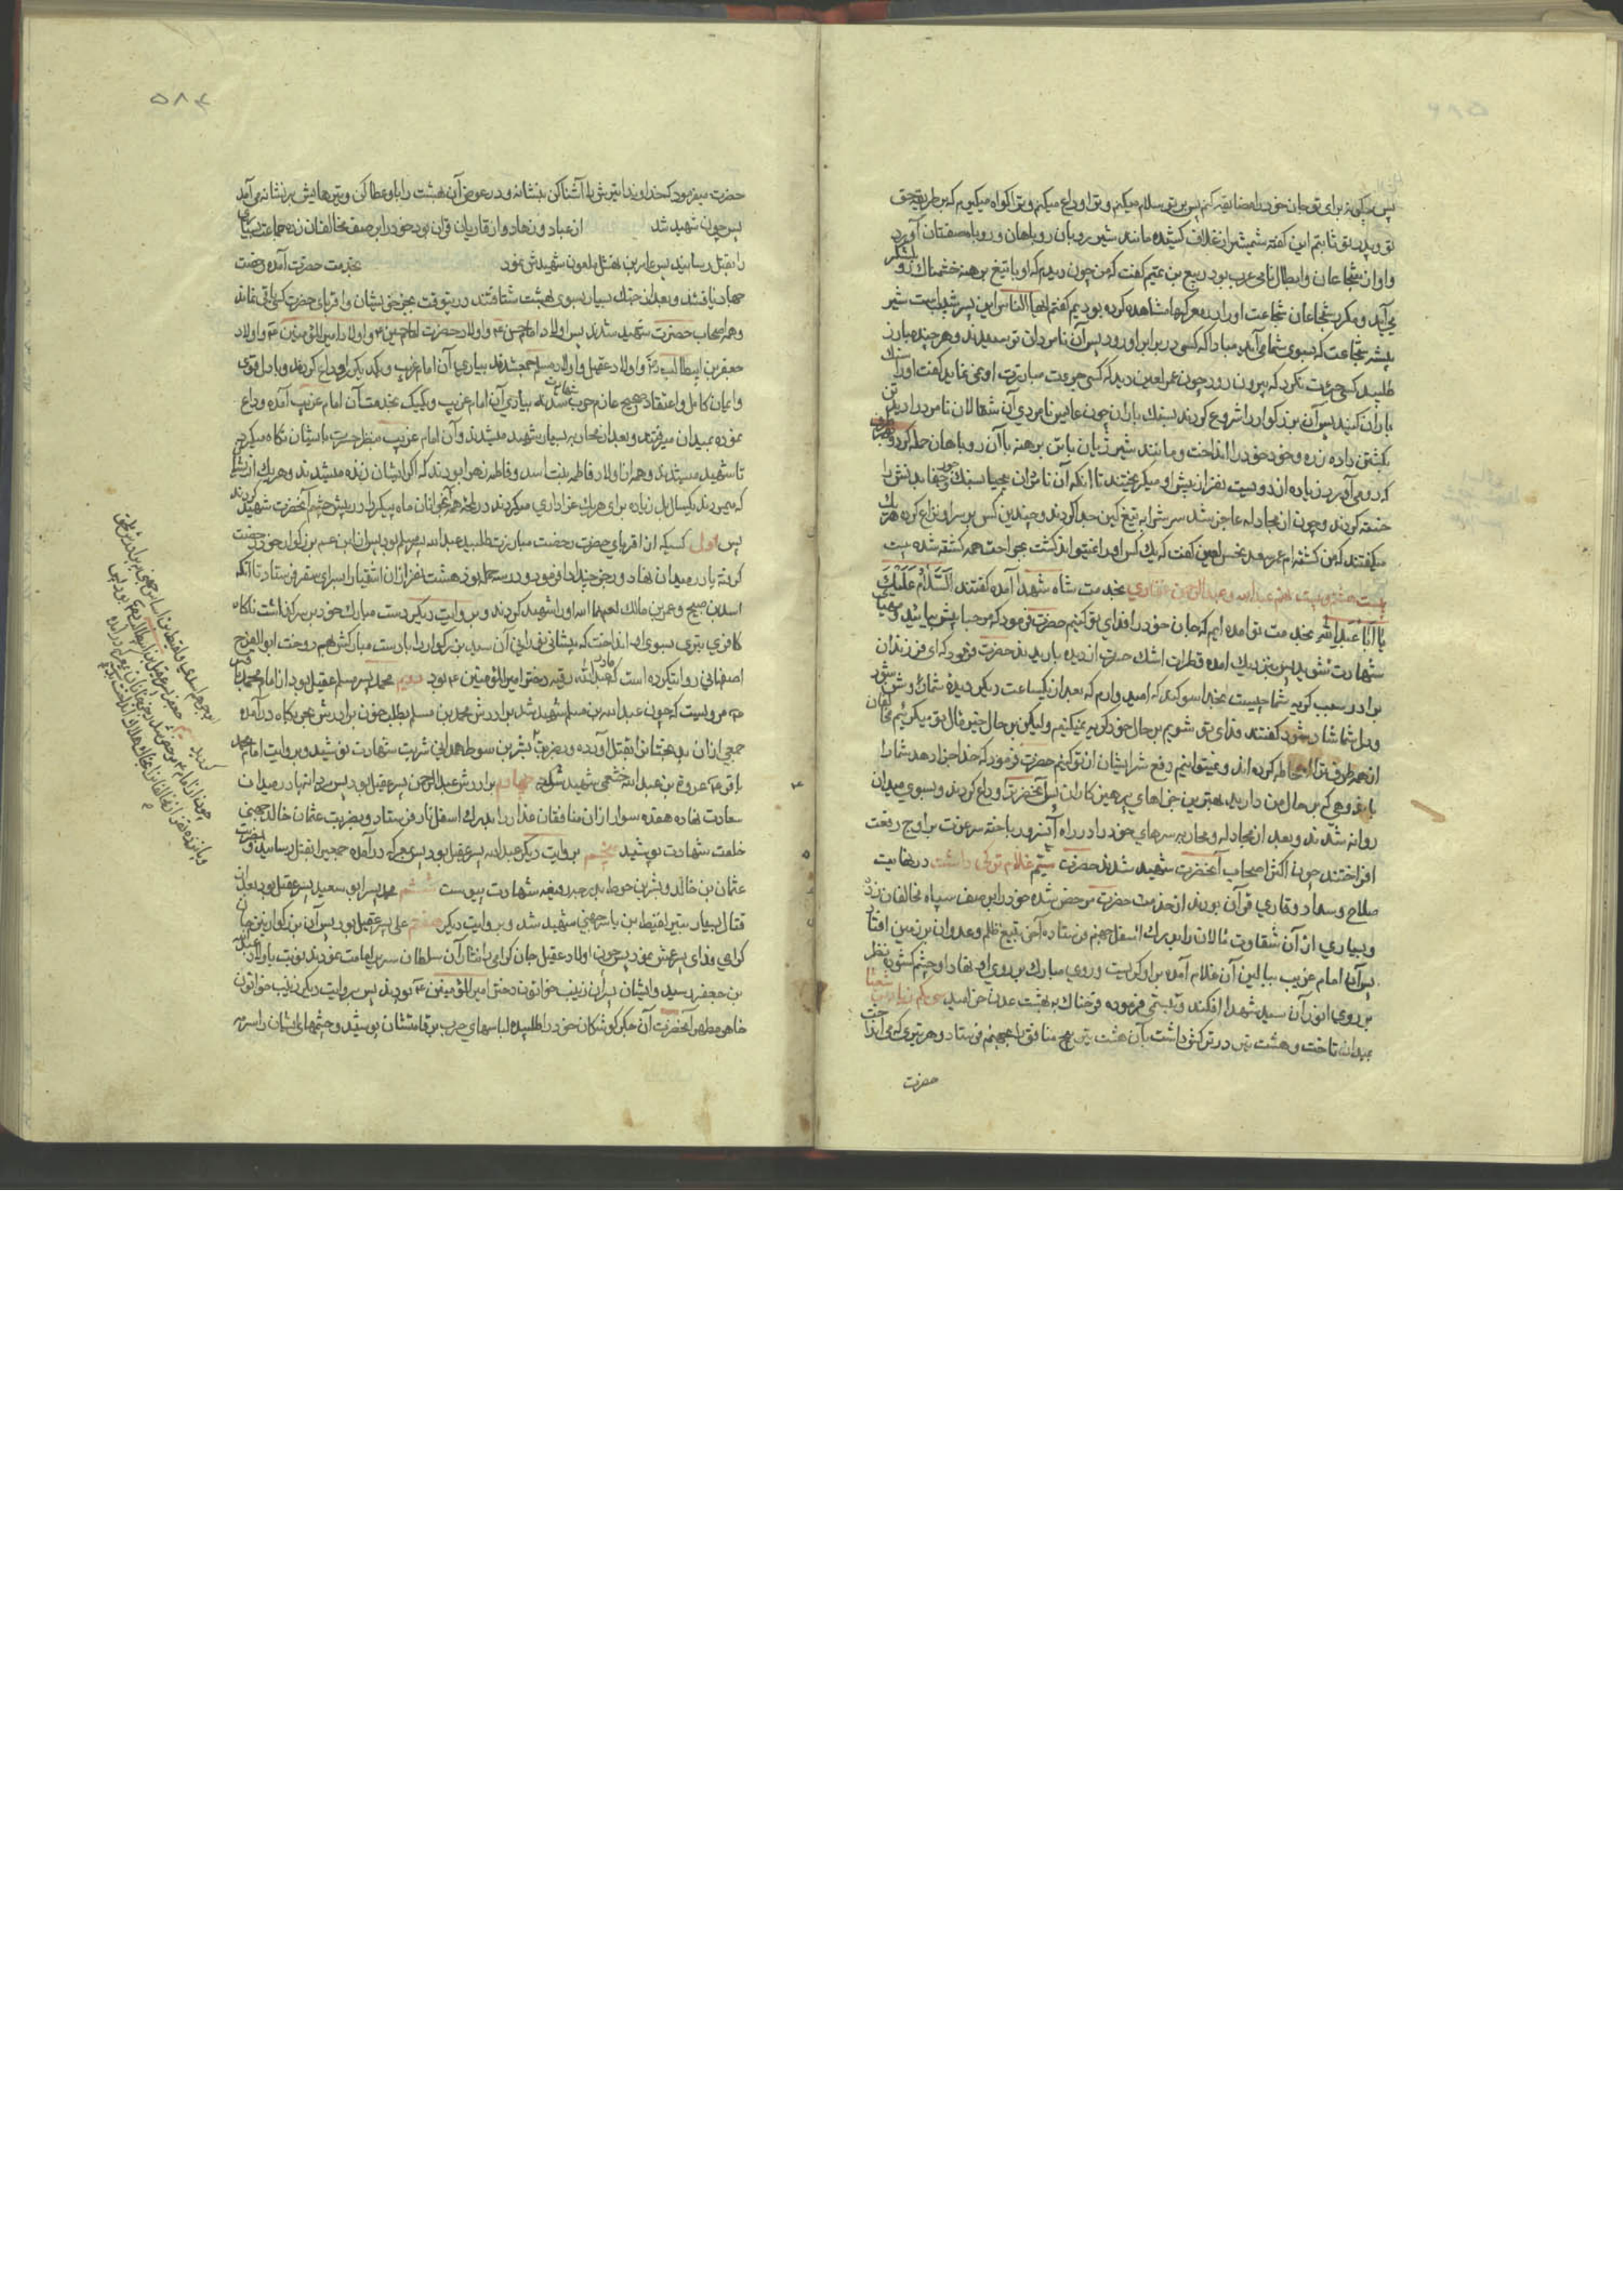 پس چگونه برای تو جان خود را مضایقه کنم پس بر تو سلام میکنم و ترا وداع میکنم و ترا گواه میگیرم که بر طریقه حق
تو و پدر تو ثابتم این گفته شمشیر از غلاف کشیده مانند شیر بروبان روباهان و روباه صفتان آورد
و او از شجاعان و ابطال نامی عرب بود ربیع بن تمیم گفت که من چون دیدم که او با تیغ برهنه خشمناک رو بلشکر
می آید و مکرر شجاعان شجاعت او را در معرکها مشاهده کرده بودیم گفتم ایها الناس این پسر شبیب است شیر
بیشه شجاعت که بسوی شما می آید مبادا که کسی در برابر او رود پس آن نامردان ترسیدند و هر چند مبارز
طلبید کسی جرئت نکرد که بیرون رود چون عمر لعین دید که کسی جرئت مبارزت او نمی نماید گفت او را سنک
باران کنید پس آن بزرگوار را شروع کردند بسنک باران چون عابس نامردی آن شغالان نامرد را دید تن
بکشتن داده زره و خود خود را انداخت و مانند شیر ژیان با تن برهنه با آن روباهان حمله کرد و بهر طرف
که روی آورد زیاده از دویست نفر از پیش او میگریختند تا آنکه آن نامردان بیحیا بسنک جور و جفا بدانش را
خسته کردند و چون از مجادله عاجز شد سرش را به تیغ کین جدا کردند و چندین کس بر سر او نزاع کرده هر یک
میگفتند که من کشته ام عمر سعد نحس لعین گفت که یک کس او را نمیتواند کشت بجراحت همه کشته شده است
بیست هشتم و بیست نهم عبدالله و عبدالرحمن غفاری بخدمت شاه شهدا آمده گفتند السلام علیک
یا ابا عبدالله بخدمت تو آمده ایم که جان خود را فدای تو کنیم حضرت فرمود که مرحبا پیش بیائید و مهیای
شهادت شوید پس نزدیک آمده قطرات اشک حسرت از دیده باریدند حضرت فرمود که ای فرزندان
برادر سبب گریه شما چیست بخدا سوگند که امید وارم که بعد از یکساعت دیگر دیده شما روشن شود
و دل شما شاد شود گفتند فدای تو شویم بر حال خود گریه نمیکنیم ولیکن بر حال خیر مآل تو میگرییم مخالفان
از همه طرف ترا احاطه کرده اند و نمیتوانیم دفع شر ایشان از تو کنیم حضرت فرمود که خدا جزا دهد شما را
باندوهی که بر حال من دارید بهترین جزاهای پرهیزکاران پس آنحضرت را وداع کردند و بسوی میدان
روانه شدند و بعد از مجادله و محاربه سرهای خود را در راه آنسرور باخته سر عزت بر اوج رفعت
افراختند چون اکثر اصحاب آنحضرت شهید شدند حضرت غلام ترکی داشت در نهایت
صلاح و سداد و قاری قرآن بود از خدمت حضرت مرخص شده خود را بر صف سپاه مخالفان زد
و بسیاری از آن شقاوت مآلان را بدرک اسفل جهنم فرستاده آخر بتیغ ظلم و عدوان بر زمین افتاد
پس آن امام غریب ببالین آن غلام آمده بر او گریست و روی مبارک بر روی او نهاد او چشم گشوده نظر
بر روی انور آن سید شهدا افکند و تبسمی فرموده فرحناک به بهشت عدن خرامید سی یکم زیاد بن شعثا
بمیدان تاخت و هشت تیر در ترکش داشت بآن هشت تیر پنج منافق را بجهنم فرستاد و هر تیری که می انداخت
حضرت
۵۸۴
حضرت میفرمود که خداوندا تیرش را آشنا کن بنشانه و در عوض آن بهشت را باو عطا کن و تیرهایش بر نشانه می آمد
پس چون شهید شد از عباد و زهاد و از قاریان قرآن بود خود را بر صف مخالفان زده جماعت بسیاری
را بقتل رسانید پس عامر بن نهشل ملعون شهیدش نمود بخدمت حضرت آمده رخصت
جهاد یافتند و بعد از جنک بسیار بسوی بهشت شتافتند در ینوقت بجز خویشان و اقربای حضرت کسی باقی نماند
و همه اصحاب حضرت شهید شدند پس اولاد امام حسن ع و اولاد حضرت امام حسین ع و اولاد امیر المؤمنین ع و اولاد
جعفر بن ابیطالب و اولاد عقیل و اولاد مسلم جمع شدند بیاری آن امام غریب و یکدیگر را وداع کردند و با دل قوی
و ایمان کامل و اعتقاد صحیح عازم حرب شدند بیاری آن امام غریب و یکیک بخدمت آن امام غریب آمده وداع
نموده بمیدان میرفتند و بعد از محاربه بسیار شهید میشدند و آن امام غریب بنظر حسرت بایشان نگاه میکرد
تا شهید میشدند و همه از اولاد فاطمه بنت اسد و فاطمه زهرا بودند که اگر ایشان زنده میشدند و هر یک از ایشان
که میمردند یکسال بل زیاده برای هر یک عزاداری میکردند در آنحال همه آنجوانان ماه پیکر را در پیش چشم آنحضرت شهید کردند
پس اول کسیکه از اقربای حضرت رخصت مبارزت طلبید عبدالله پسر مسلم بود پس از ابن عم بزرگوار خود رخصت
گرفته پا در میدان نهاد و رجزی چند ادا فرمود و در سه حمله نود هشت نفر از آن اشقیا را بسرای سقر فرستاد تا آنکه
اسد بن صبیح و عمر بن مالک لعنهما الله او را شهید کردند و بروایت دیگر دست مبارک خود بر سر گذاشت ناگاه
کافری تیری بسوی او انداخت که پیشانی نورانی آن سید بزرگوار را با دست مبارکش بهم دوخت ابو الفرج
اصفهانی روایت کرده است که مادر عبدالله رقیه دختر امیر المؤمنین ع بود دویم محمد پسر مسلم عقیل بود از امام محمد باقر
ع مرویست که چون عبدالله بن مسلم شهید شد برادرش محمد بن مسلم بطلب خون برادرش بحربگاه درآمده
جمعی از آن بدبختان را بقتل آورده و بضربت بشر بن سوط همدانی شربت شهادت نوشید و بروایت امام محمد
باقر ع عروة بن عبدالله خثعمی شهید شد چهارم برادرش عبدالرحمن پسر عقیل بود پس مردانه پا در میدان
سعادت نهاده هفده سوار از آن منافقان غدار را بدرک اسفل نار فرستاد و بضربت عثمان خالد جهنی
خلعت شهادت پوشید پنجم بروایت دیگر عبدالله پسر عقیل بود پس بمعرکه درآمده جمعی را بقتل رسانید و بضربت
عثمان بن خالد و بشر بن حوط بدرجه رفیعه شهادت پیوست ششم محمد پسر ابو سعید پسر عقیل بود بعد از
قتال بسیار بتیر لقیط بن یاسر جهنی شهید شد و بروایت دیگر هفتم علی پسر عقیل بود پس آن بزرگوار نیز جان
گرامی فدای پسر عمش نمود پس چون اولاد عقیل جان گرامی را نثار آن سلطان سریر امامت نمودند نوبت باولاد عبدالله
بن جعفر رسید و ایشان پسران زینب خواتون دختر امیر المؤمنین ع بودند پس بروایت دیگر زینب خواتون
خواهر مطهر آنحضرت آن جگر گوشگان خود را طلبیده لباسهای حرب بر قامتشان پوشید و چشمهای ایشان را سرمه